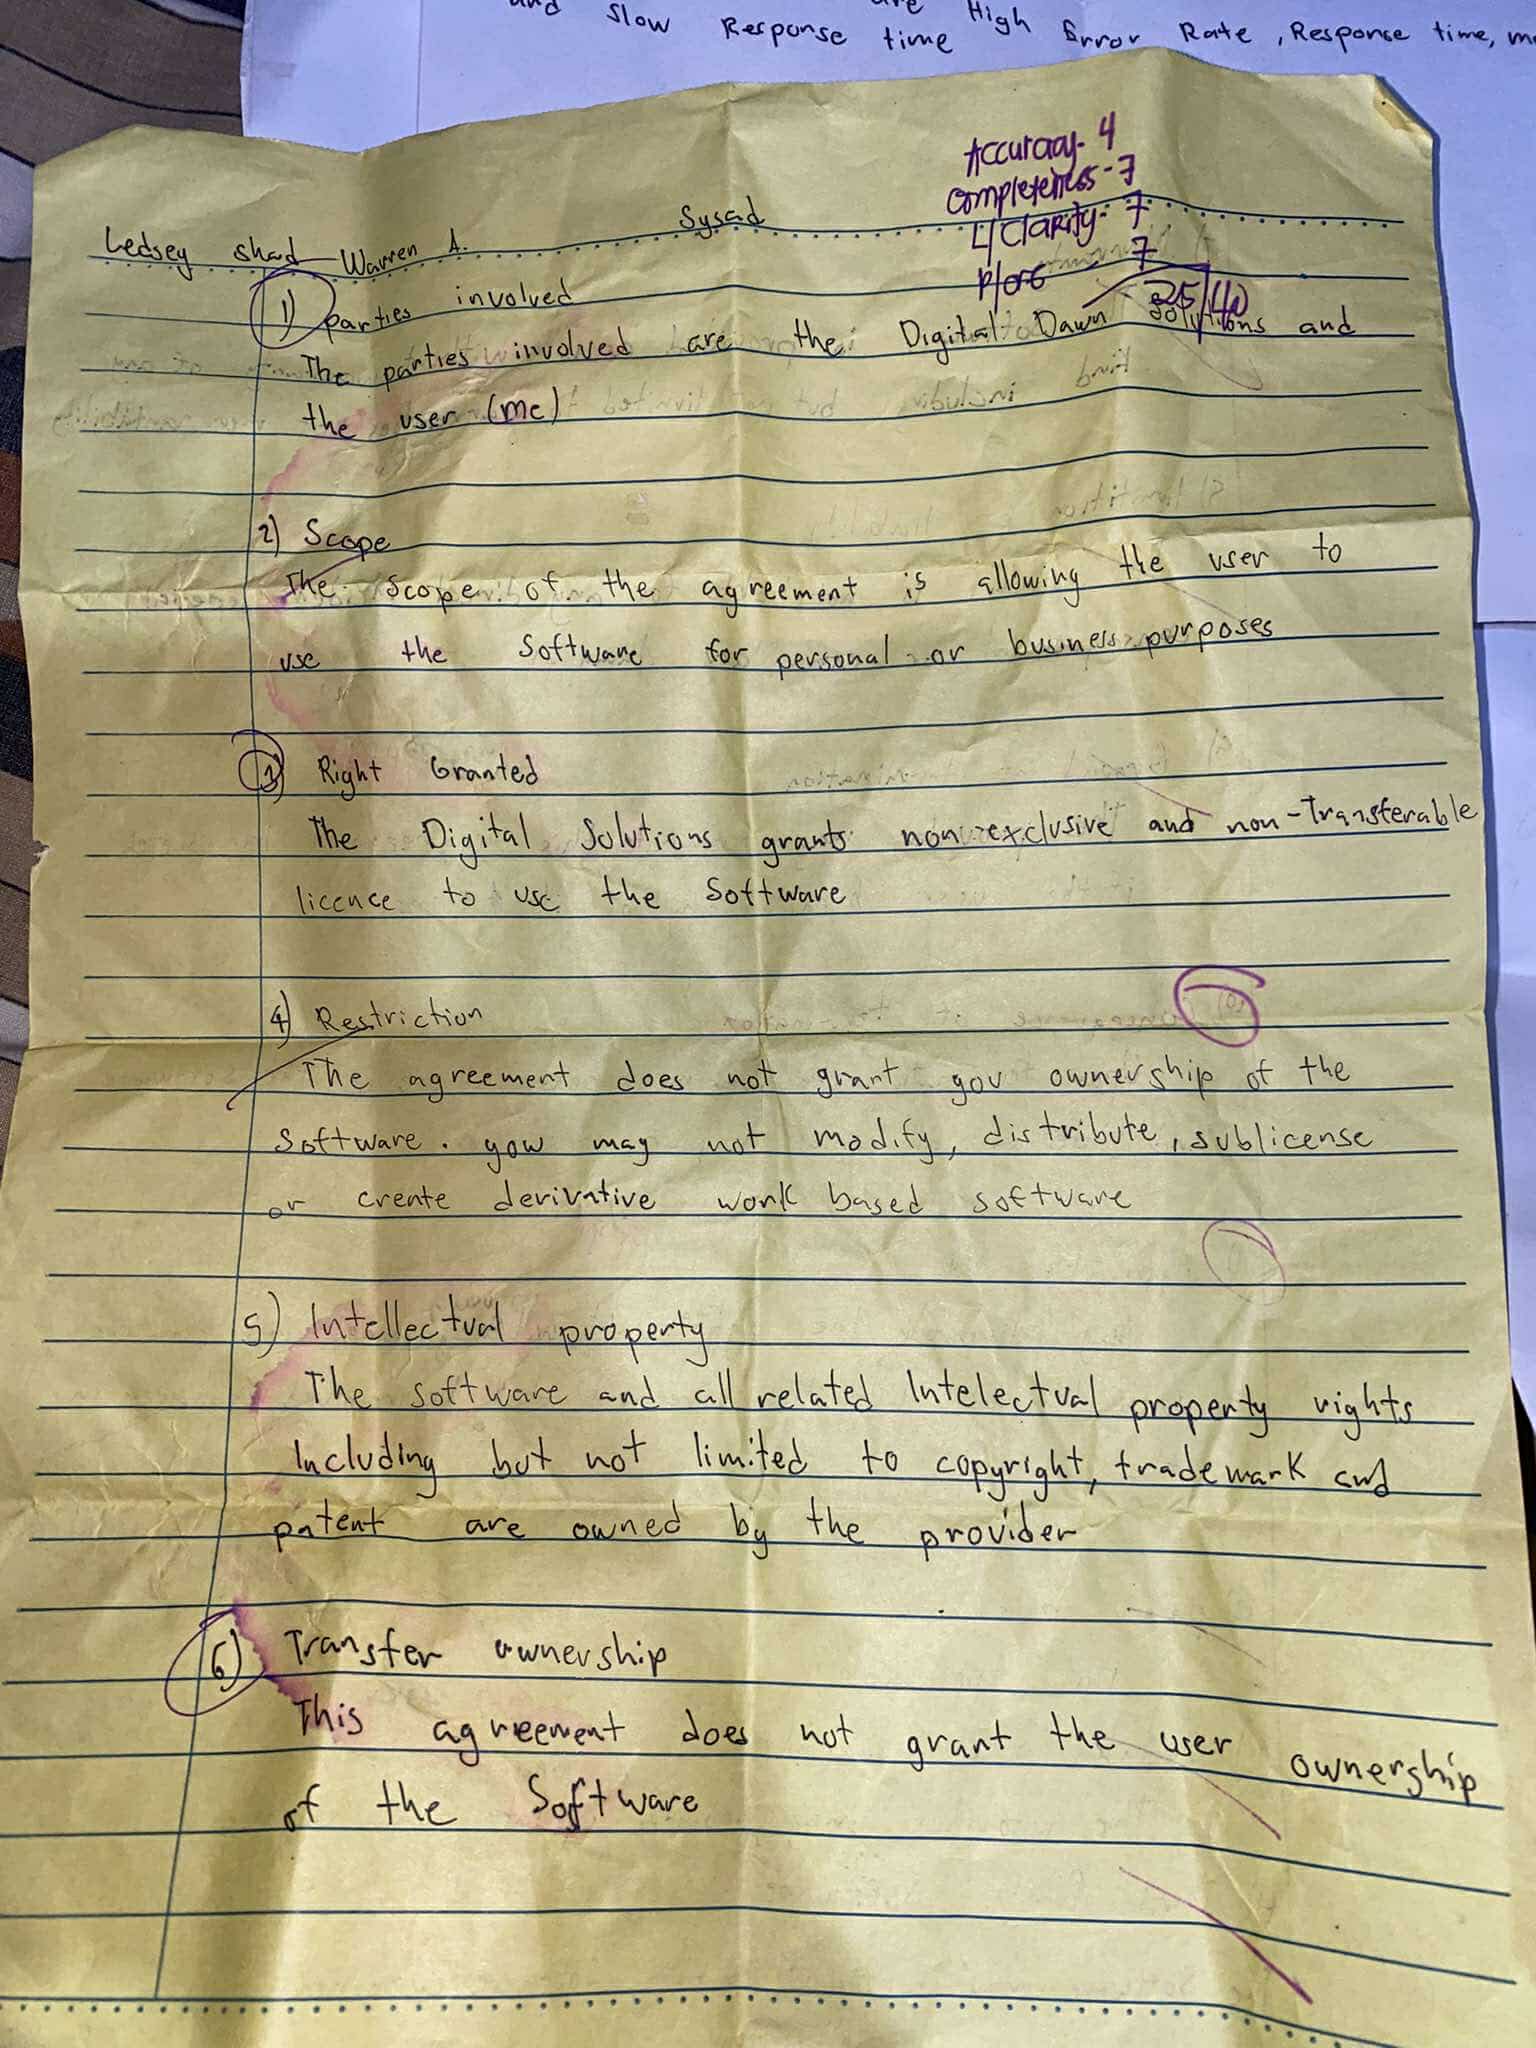 and slow Response time are High Error Rate, Response time,
Accuracy - 4
completeness - 7
L/Clarity - 7
P/ORG 7
25/40
Ledsey Shad Warren A. Sysad
1) parties involved
The parties involved are the Digital Dawn Solutions and
the user (me)
2) Scope
The scope of the agreement is allowing the user to
use the Software for personal or business purposes
3) Right Granted
The Digital Solutions grants non-exclusive and non-Transferable
licence to use the Software
4) Restriction
The agreement does not grant you ownership of the
Software. you may not modify, distribute, sublicense
or create derivative work based software
5) Intellectual property
The software and all related Intelectual property rights
Including but not limited to copyright, trademark and
patent are owned by the provider
6) Transfer ownership
This agreement does not grant the user ownership
of the Software